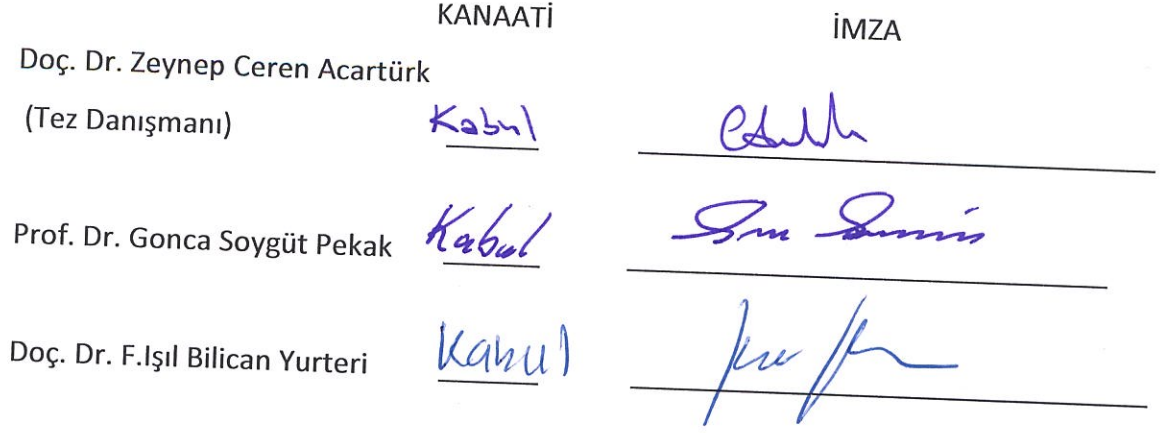 KANAATİ İMZA
Doç. Dr. Zeynep Ceren Acartürk
(Tez Danışmanı) Kabul
Prof. Dr. Gonca Soygüt Pekak Kabul
Doç. Dr. F.Işıl Bilican Yurteri Kabul